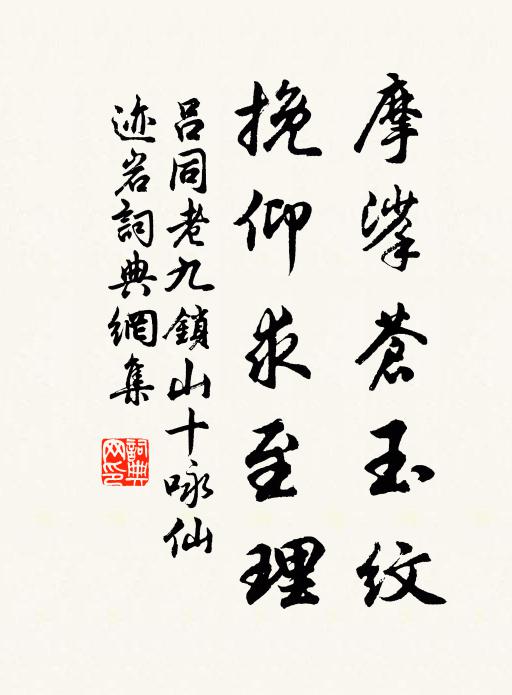 摩挲蒼玉紋
挽仰求至理
呂同老九鎖山十咏仙
迹岩詞典網集
詞典
网印